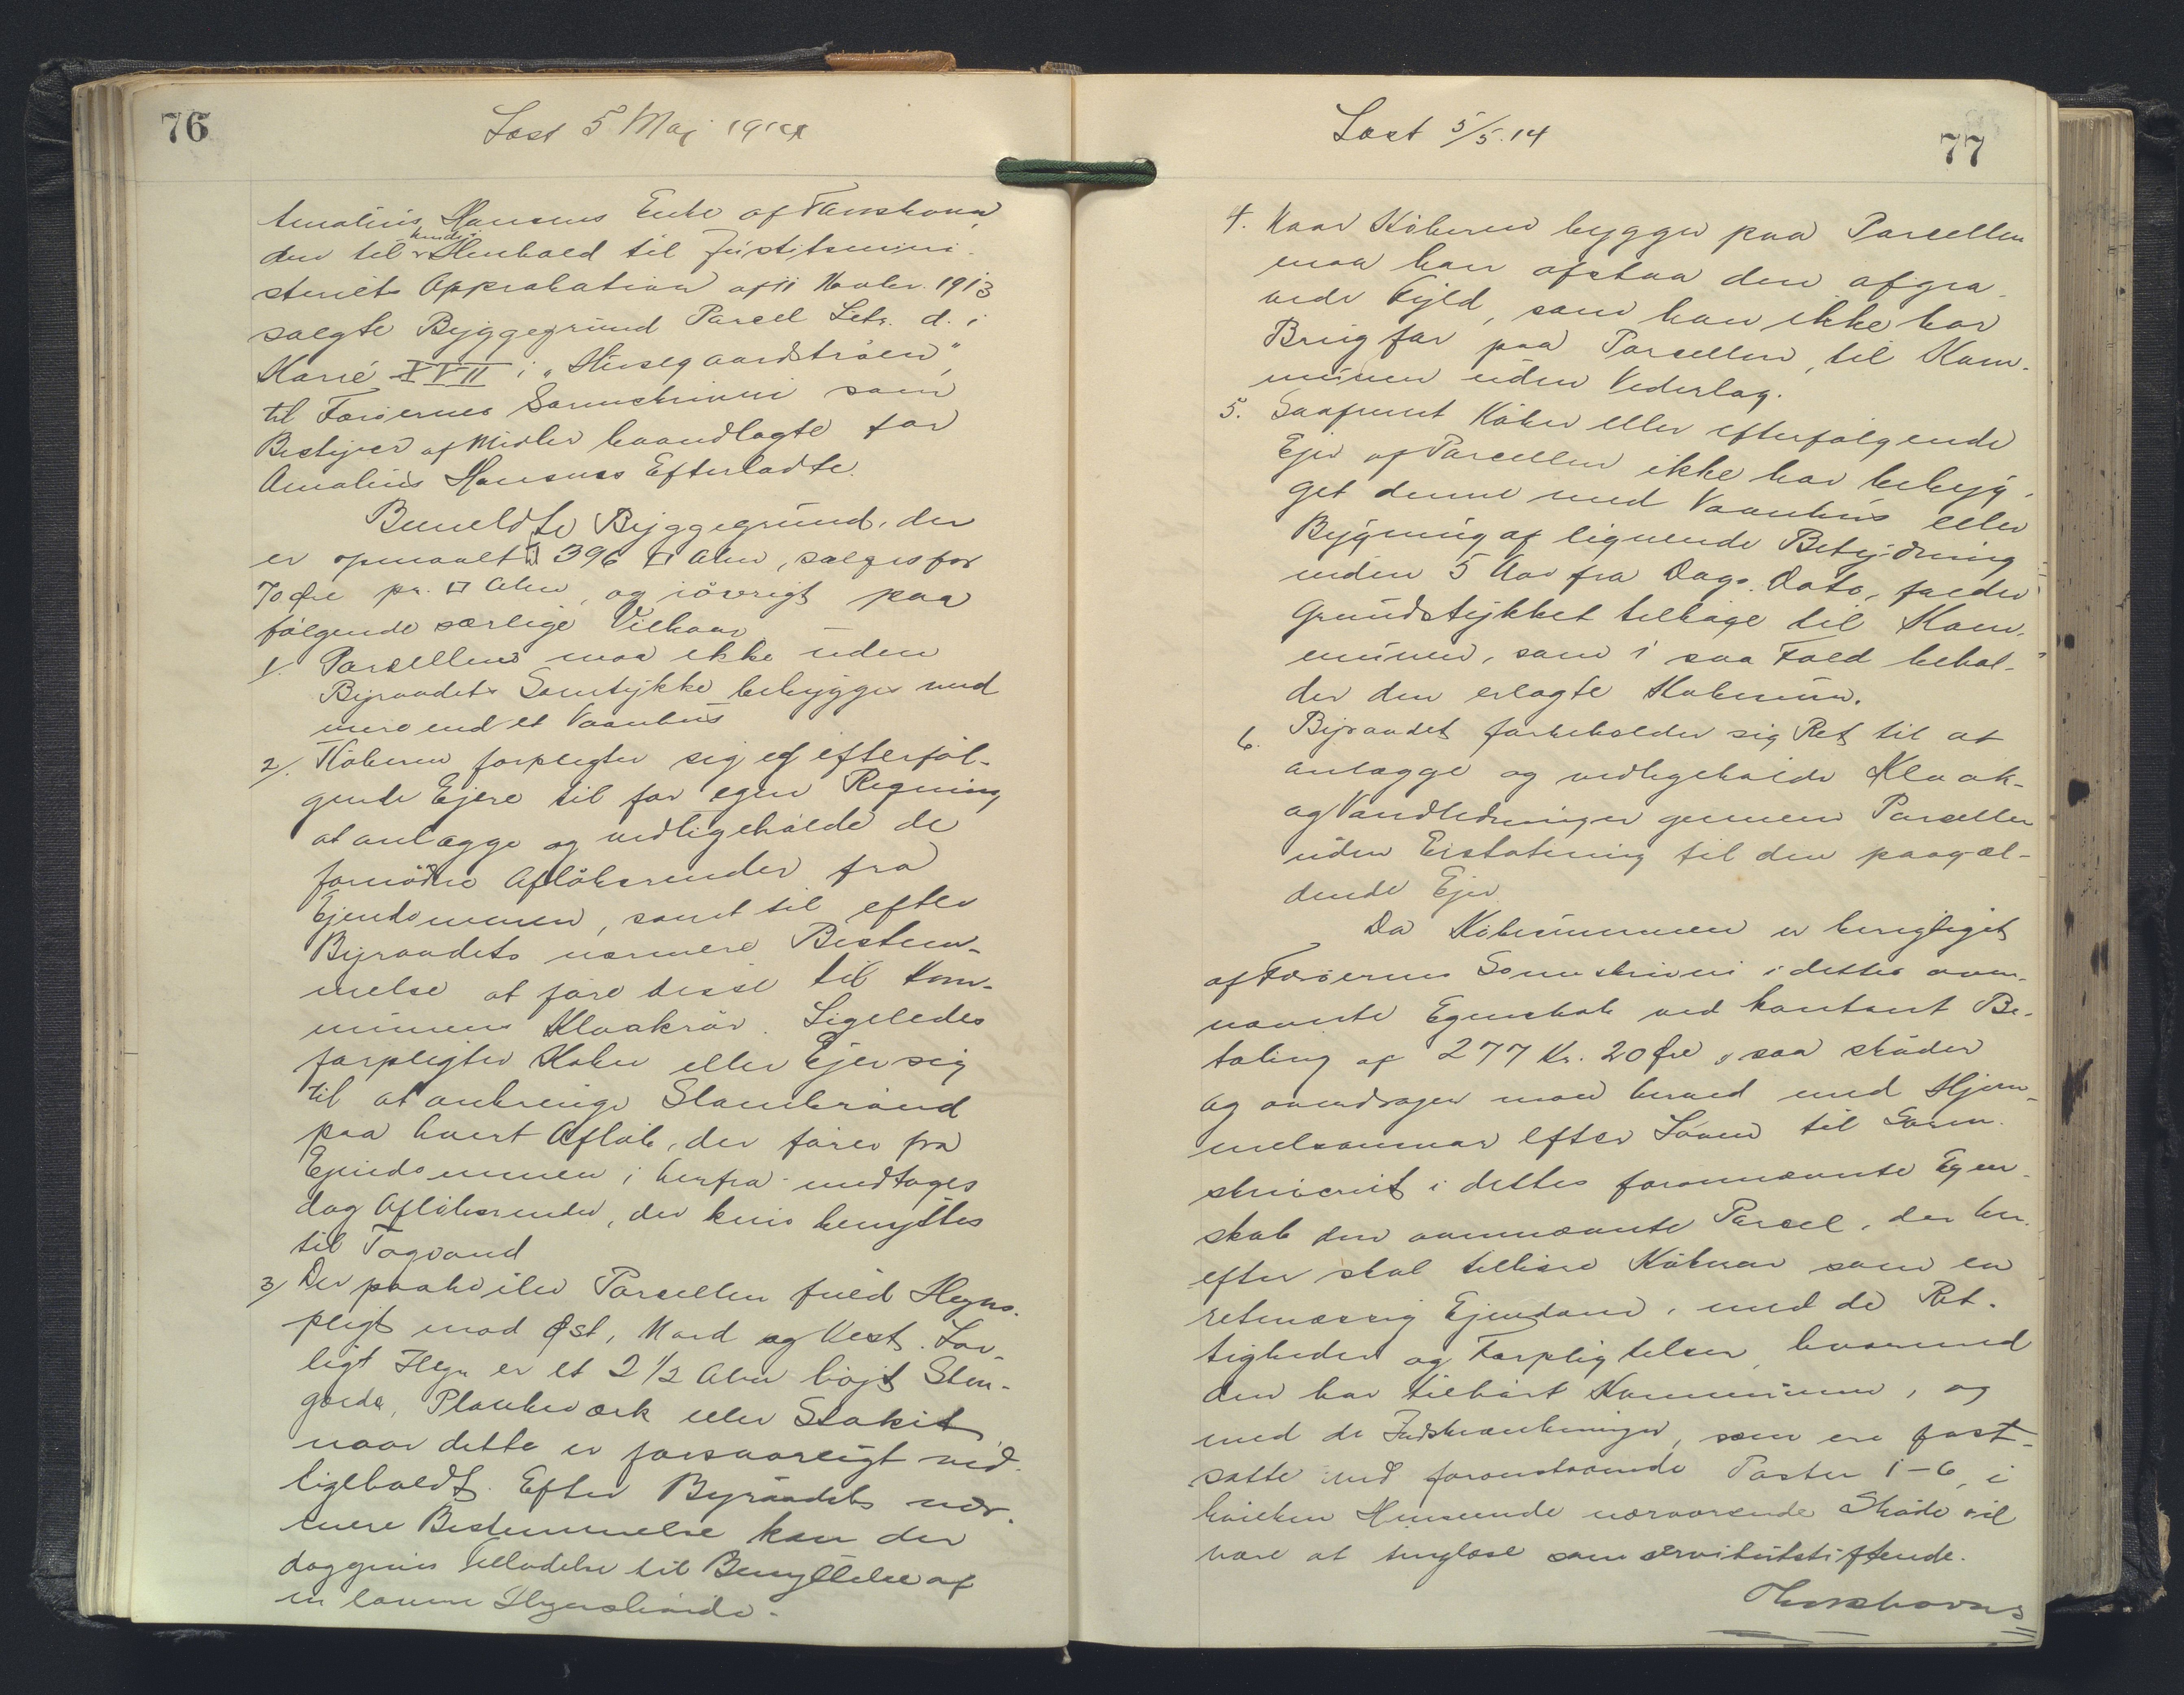 76
Læst 5 Maj 1914
Amalius Hansens Enke af Thorshavn
den til kendi
Henhold til Justitsmini-
steriets Approbation af 11 Novbr. 1913
solgte Byggegrund Parcel Litr. d. i
Karré XVII i "Stivsegaardströen",
til Færöernes Sorenskriveri som
Bestyrer af Midler baandlagte for
Amalius Hansens Efterladte.
Bemeldte Byggegrund, der
er opmaalt 396 □ Alen, sælges for
70 Øre pr. □ Alen, og iövrigt paa
fölgende særlige Vilkaar
1/. Parcellen maa ikke uden
Byraadets Samtykke bebygges med
mere end et Vaanhus
2/. Köberen forpligter sig og efterföl-
gende Ejere til for egen Regning
at anlægge og vedligeholde de
fornödne Aflöbsrender fra
Ejendommen, samt til efter
Byraadets nærmere Bestem-
melse at före disse til Kom-
munens Kloakrör. Ligeledes
forpligter Köber eller Ejer sig
til at anbringe Slambrönd
paa hvert Aflöb, der förer fra
Ejendommen; herfra undtages
dog Aflöbsrender, der kun benyttes
til Tagvand
3/ Der paahviler Parcellen fuld Hegns-
pligt mod Øst, Nord og Vest. Lov-
ligt Hegn er et 2 1/2 Alen höjt Sten-
gærde, Plankeværk eller Stakit
naar dette er forsvarligt ved-
ligeholdt. Efter Byraadets nær-
mere Bestemmelse kan der
dog gives Tilladelse til Benyttelse af
en lavere Hegnshöide.
77
Læst 5/5. 14
4. Naar Köberen bygger paa Parcellen
maa han afstaa den afgra-
vede Fyld, som han ikke har
Brug for paa Parcellen, til Kom-
munen uden Vederlag.
5. Saafremt Köber eller efterfölgende
Ejer af Parcellen ikke har bebyg-
get denne med Vaanhus eller
Bygning af lignende Betydning
inden 5 Aar fra Dags Dato, falder
Grundstykket tilbage til Kom-
munen, som i saa Fald behol-
der den erlagte Købesum.
6. Byraadet forbeholder sig Ret til at
anlægge og vedligeholde Kloak-
og Vandledninger gennem Parcellen
uden Erstatning til den paagæl-
dende Ejer
Da Köbesummen er berigtiget
af Færöernes Sorenskriveri i dettes oven-
nævnte Egenskab ved kontant Be-
taling af 277 Kr. 20 Øre, saa sköder
og overdrager man herved med Hjem-
melsansvar efter Loven til Soren-
skriveriet i dettes forannævnte Egen-
skab den ovennævnte Parcel, der her-
efter skal tilhöre Köberen som en
retmæssig Ejendom, med de Ret-
tigheder og Forpligtelser, hvormed
den har tilhört Kommunen, og
med de Indskrænkninger, som ere fast-
satte ved foranstaaende Poster 1-6, i
hvilken Henseende nærværende Sköde vil
være at tinglæse som servitutstiftende.
Thorshavns